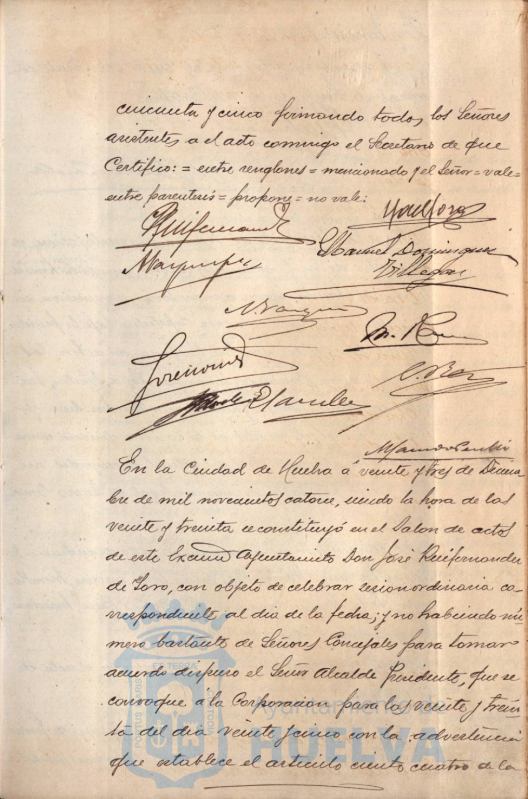 cincuenta y cinco firmando todos los Señores
asistentes a el acto conmigo el Secretario de que
Certifico: = entre renglones = mencionado y el Señor = vale =
entre parentesis = propone = no vale:
Manuel Dominguez
Villegas
En la Ciudad de Huelva á veinte y tres de Diciem
bre de mil novecientos catorce, siendo la hora de las
veinte y treinta se constituyó en el Salon de actos
de este Excmo Ayuntamiento Don José Ruifernandez
de Toro, con objeto de celebrar sesion ordinaria co-
rrespondiente al dia de la fecha; y no habiendo nu
mero bastante de Señores Concejales para tomar
acuerdo dispuso el Señor Alcalde Presidente que se
convoque á la Corporacion para las veinte y trein
ta del dia veinte y cinco con la advertencia
que establece el articulo ciento cuatro de la
Ayuntamiento de
HUELVA